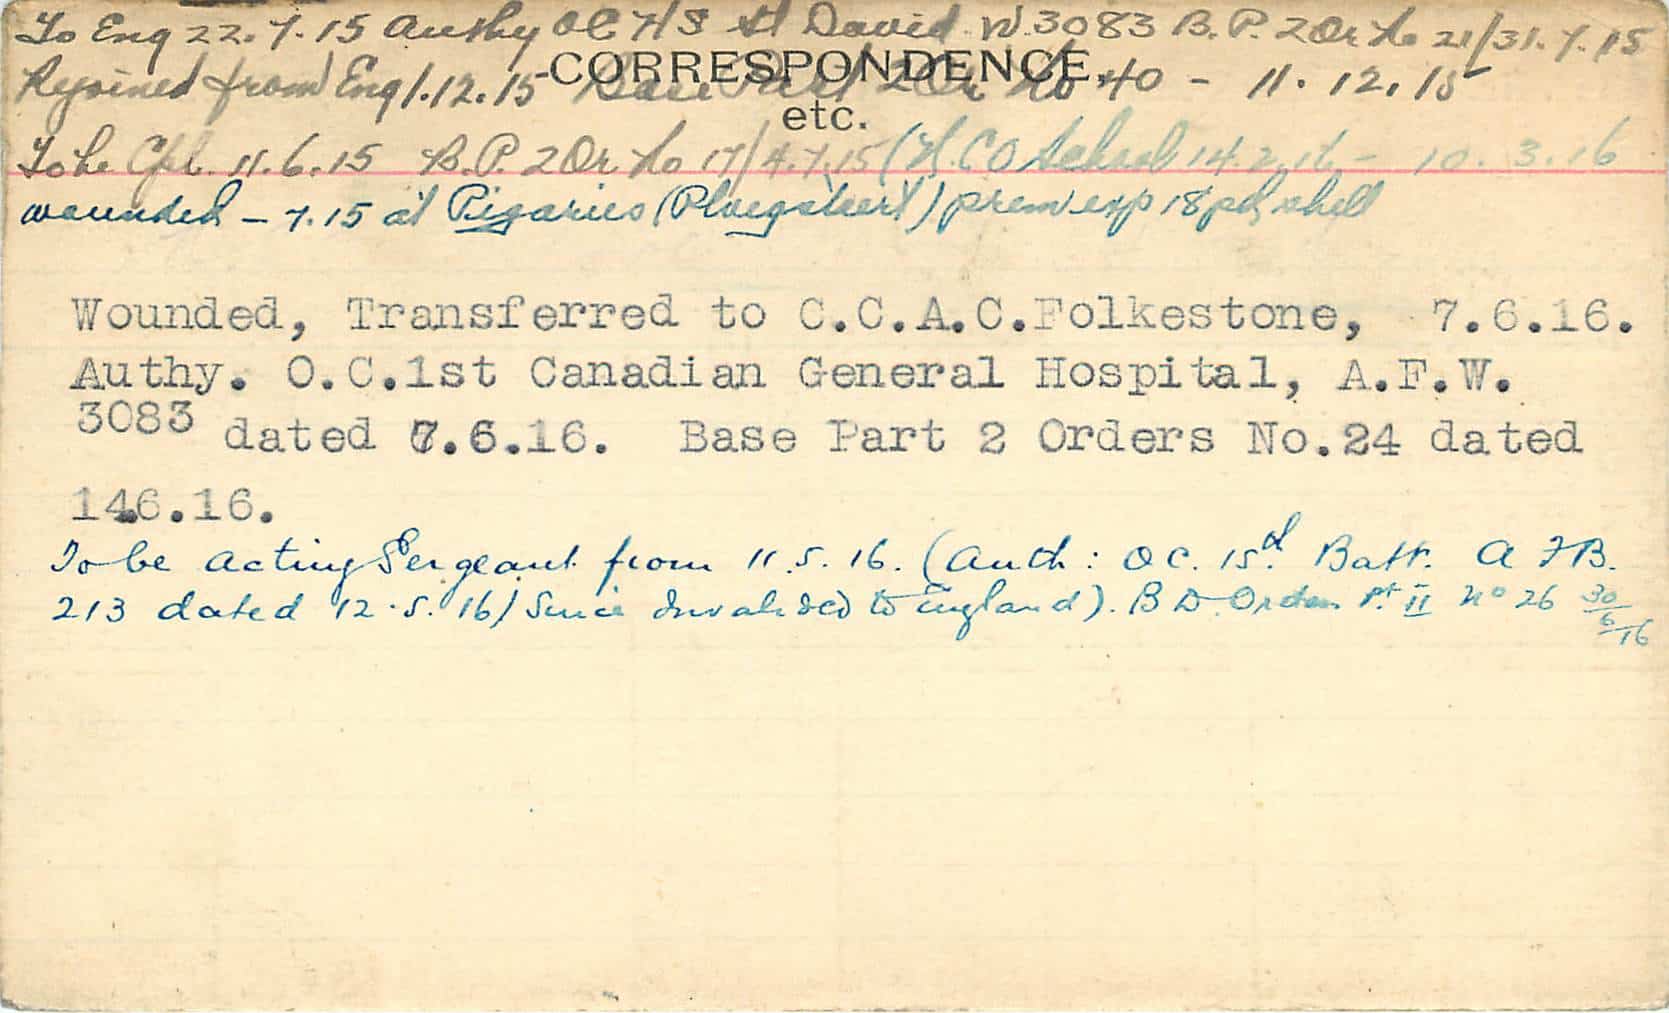 To Eng 22.7.15 Authy OC HS St David W.3083 B.P. 2 Or No 21/31.7.15
CORRESPONDENCE,
Rejoined from Eng 1.12.15 Base Part 2 Or No 40 - 11.12.15
etc.
To be Cpl. 11.6.15 B.P. 2 Or No 17/4.7.15 (N.C.O School 14.2.16 - 10.3.16
wounded - 7.15 at Pigaries (Ploegsteert) prem exp 18 pdr shell
Wounded, Transferred to C.C.A.C.Folkestone, 7.6.16.
Authy. O.C.1st Canadian General Hospital, A.F.W.
3083 dated 7.6.16. Base Part 2 Orders No.24 dated
14.6.16.
To be Acting Sergeant from 11.5.16. (Auth: OC. 15th Batt. A F B.
213 dated 12.5.16) Since Invalided to England). B D Orders Pt II No 26 30/6/16